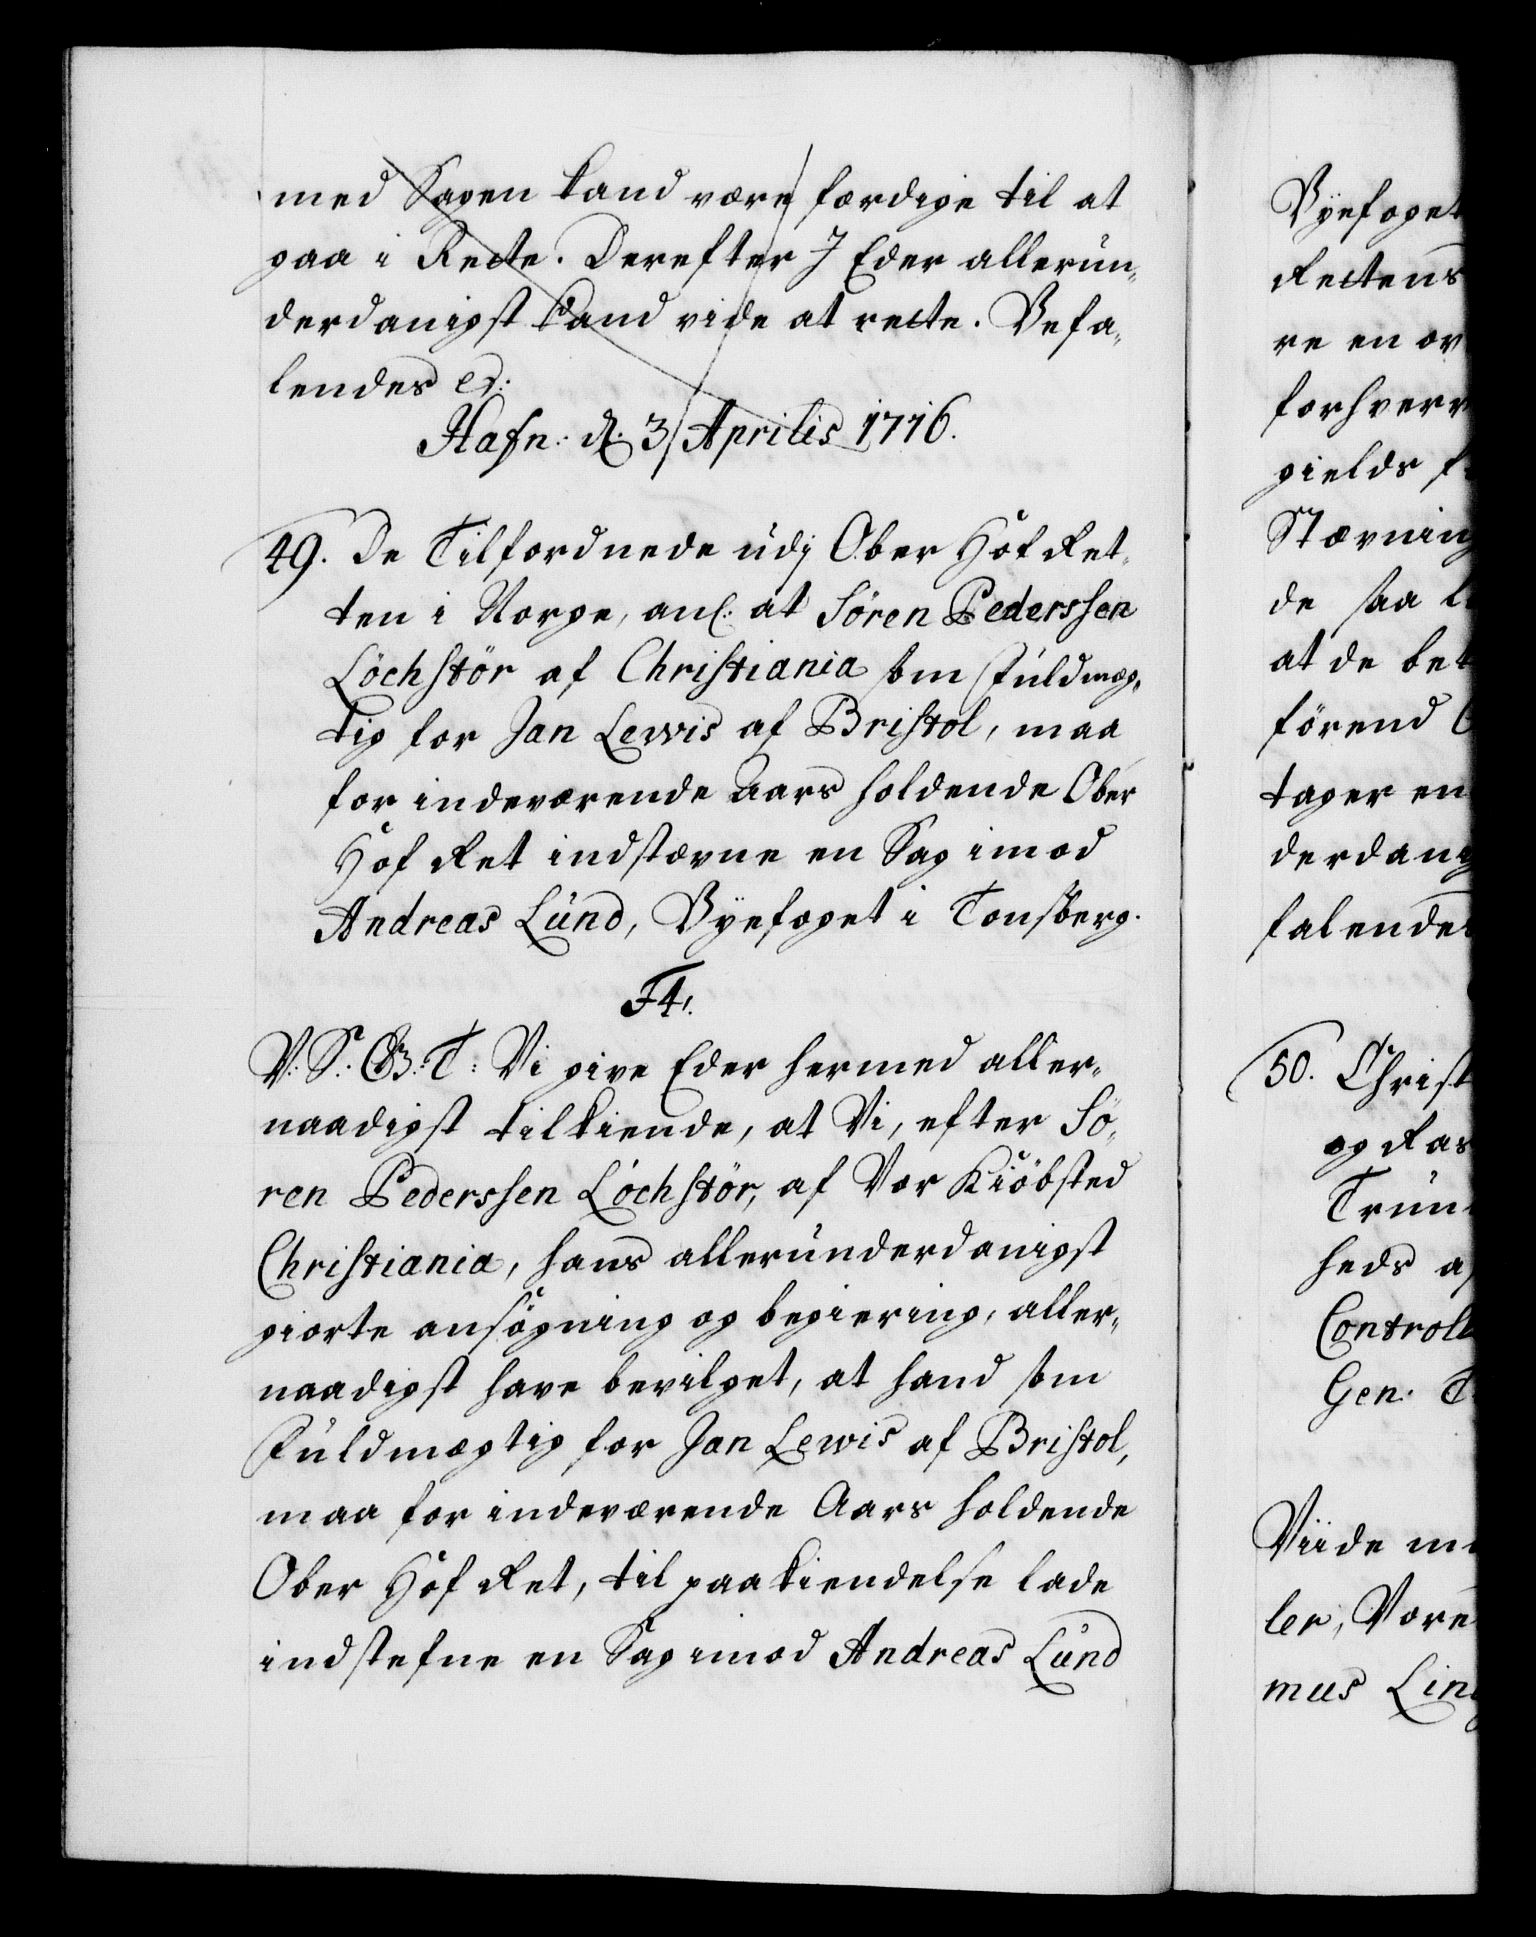 med Sagen kand være færdige til at
gaa i Rette. Derefter I Eder allerun„
derdanigst kand vide at rette. Befa„
lendes etc:
Hafn: d. 3 Aprilis 1716.
49. De Tilfordnede udj Ober Hof Ret„
ten i Norge, anl: at Sören Pederssen
Löchstör af Christiania som Fuldmæg„
tig for Jan Lewis af Bristol, maa
for indeværende Aars holdende Ober
Hof Ret indstævne en Sag imod
Andreas Lund, Byefoget i Tonsberg.
F4.
V: S: G: T: Vi give Eder hermed aller„
naadigst tilkiende, at Vi, efter Sö„
ren Pederssen Löchstör, af Vor Kiöbsted
Christiania, hans allerunderdanigst
giorte ansögning og begiering, aller„
naadigst have bevilget, at hand som
Fuldmægtig for Jan Lewis af Bristol,
maa for indeværende Aars holdende
Ober Hof Ret, til paakiendelse lade
indstefne en Sag imod Andreas Lund
Byefoget
Rettens
re en ov
forhverv
gields f
Stævning
de saa l
at de bet
förend
tager en
derdanig
falendes
50. Christ
og Ras
Trun
heds af
Controll
Gen. T
Viide m
ler, Vore
mus Lin